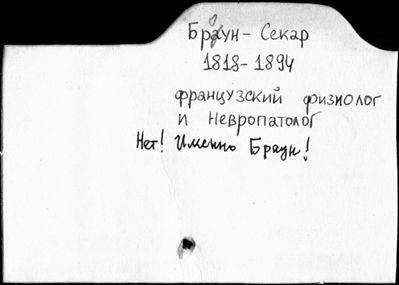 Браун - Секар
1818-1894
французский физиолог
и невропатолог
Нет! Именно Браун!